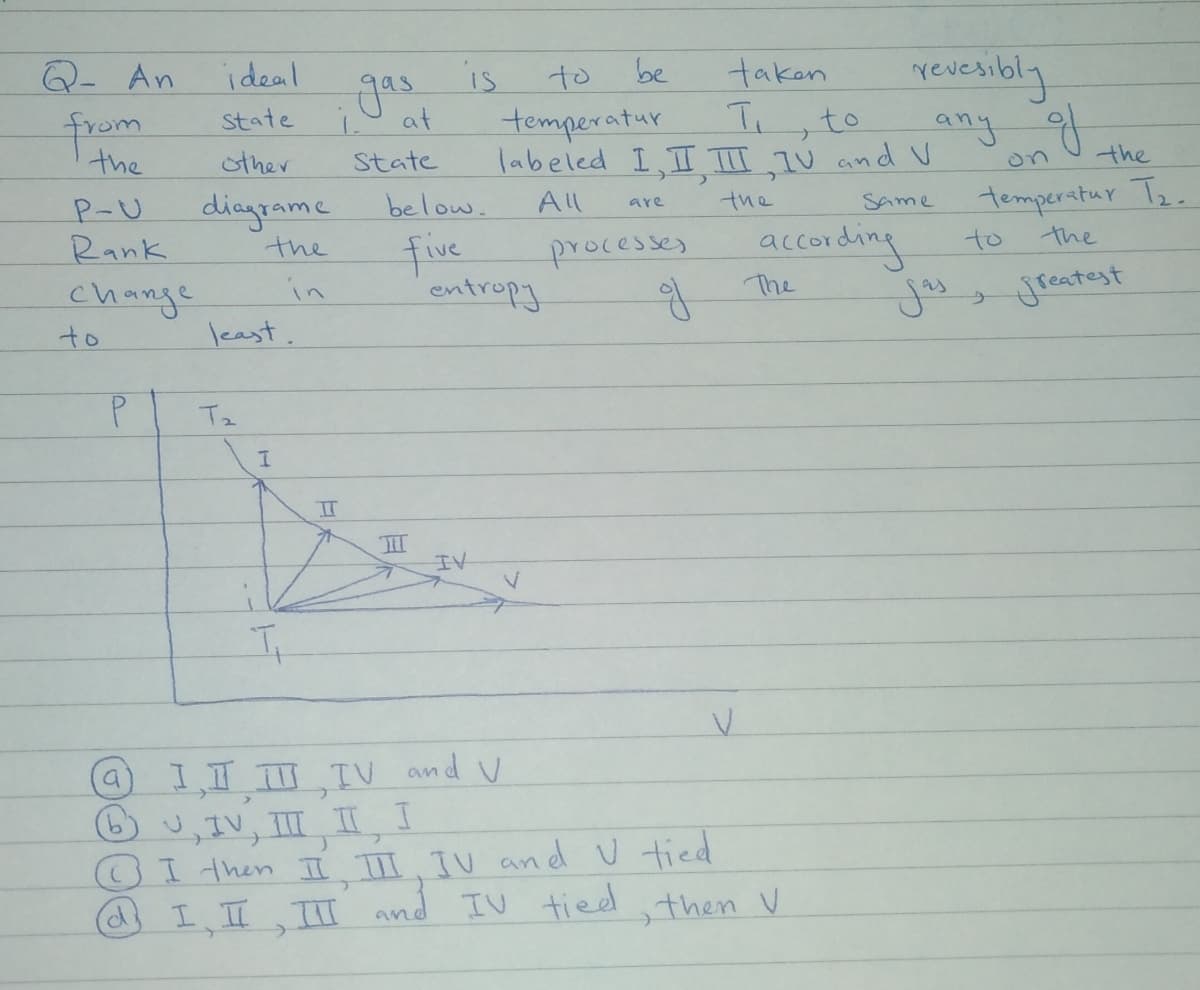 Q- An ideal gas is to be taken revesibly
from state i. at temperatur T₁, to any of
the other state labeled I, II, III, IV and V on the
P-V diagrame below. All are the same temperatur T₂.
Rank the five processes according to the
change in entropy of the gas, greatest
to least.
P
T₂
I
II
III
IV
V
i
T₁
V
(a) I, II, III, IV and V
(b) V, IV, III, II, I
(c) I then II, III, IV and V tied
(d) I, II, III and IV tied, then V